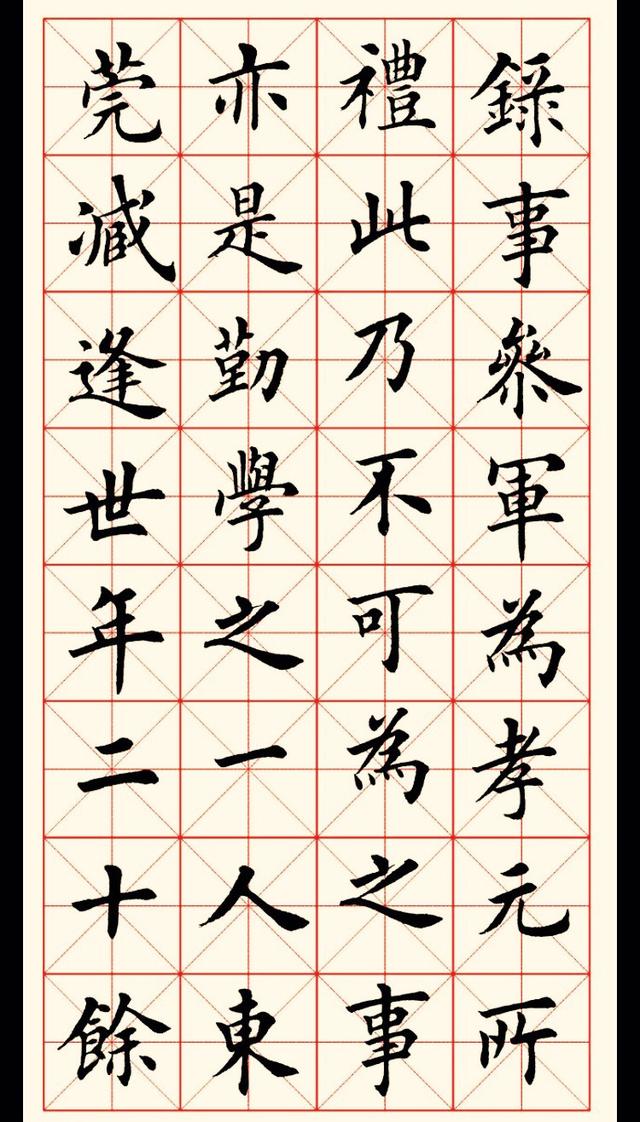 錄事參軍為孝元所
禮此乃不可為之事
亦是勤學之一人東
莞臧逢世年二十餘